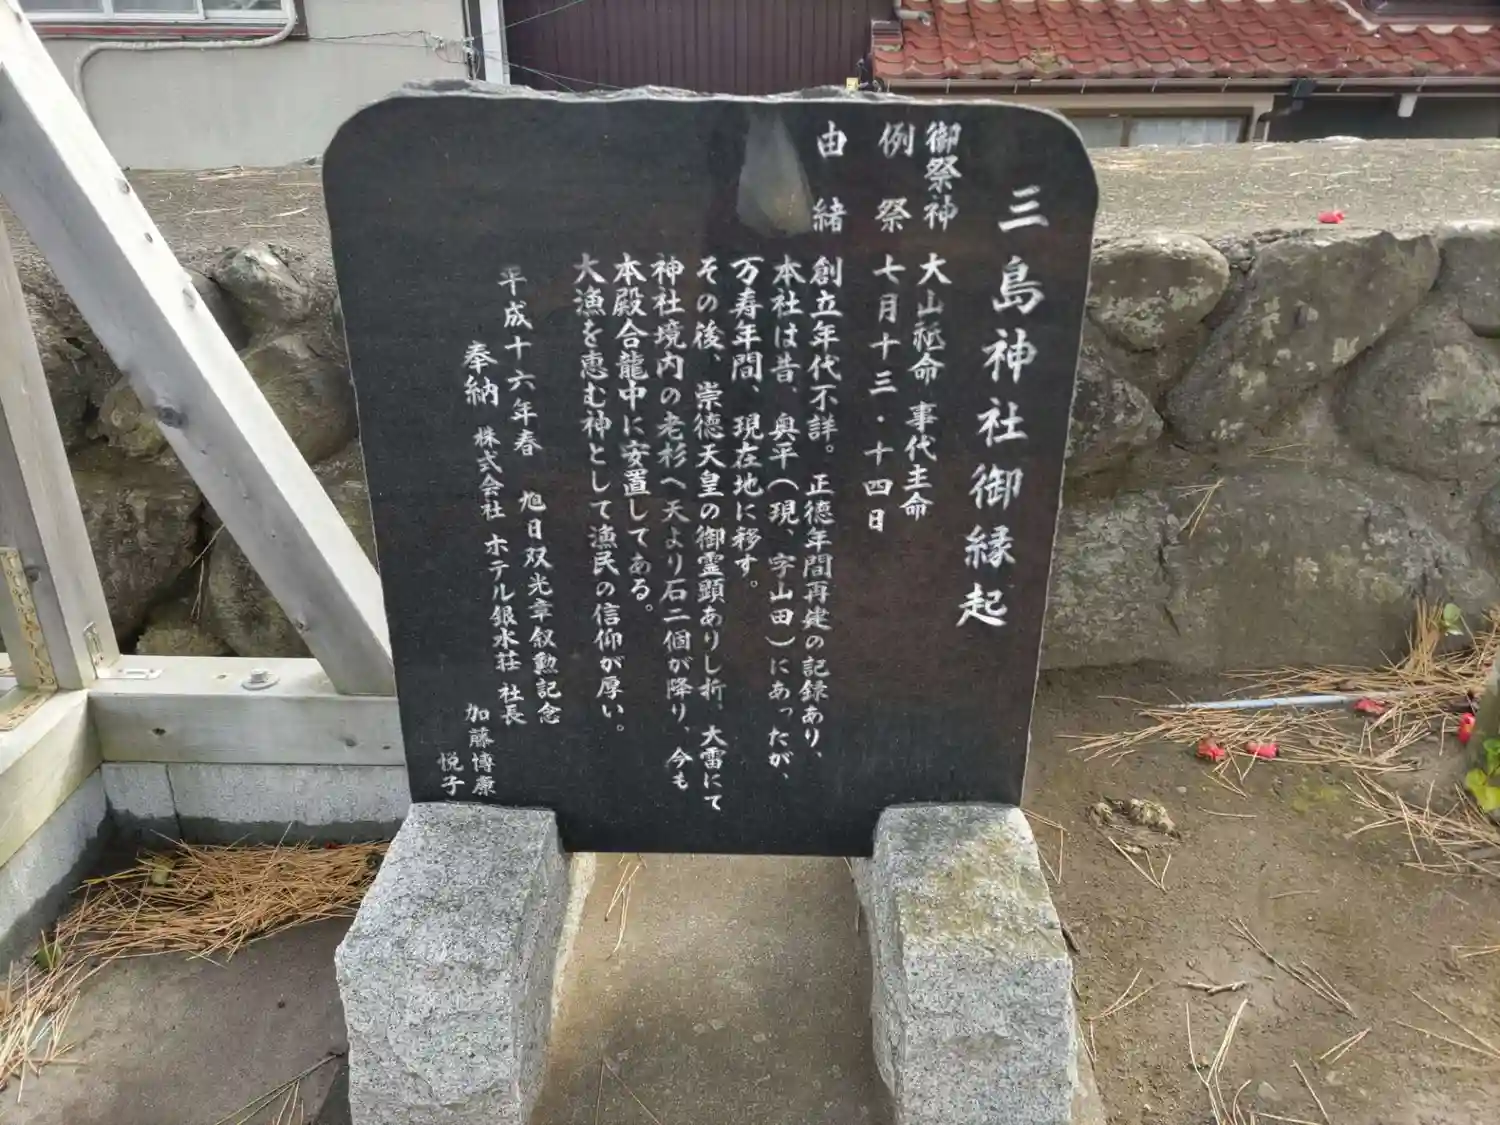 三島神社御縁起
御祭神 大山祗命 事代主命
例祭 七月十三・十四日
由緒 創立年代不詳。正徳年間再建の記録あり、
本社は昔、奥平(現、字山田)にあったが、
万寿年間、現在地に移す。
その後、崇徳天皇の御霊顕ありし折、大雷にて
神社境内の老杉へ天より石二個が降り、今も
本殿合龍中に安置してある。
大漁を恵む神として漁民の信仰が厚い。
平成十六年春 旭日双光章叙勲記念
奉納 株式会社 ホテル銀水荘 社長
加藤博康
悦子